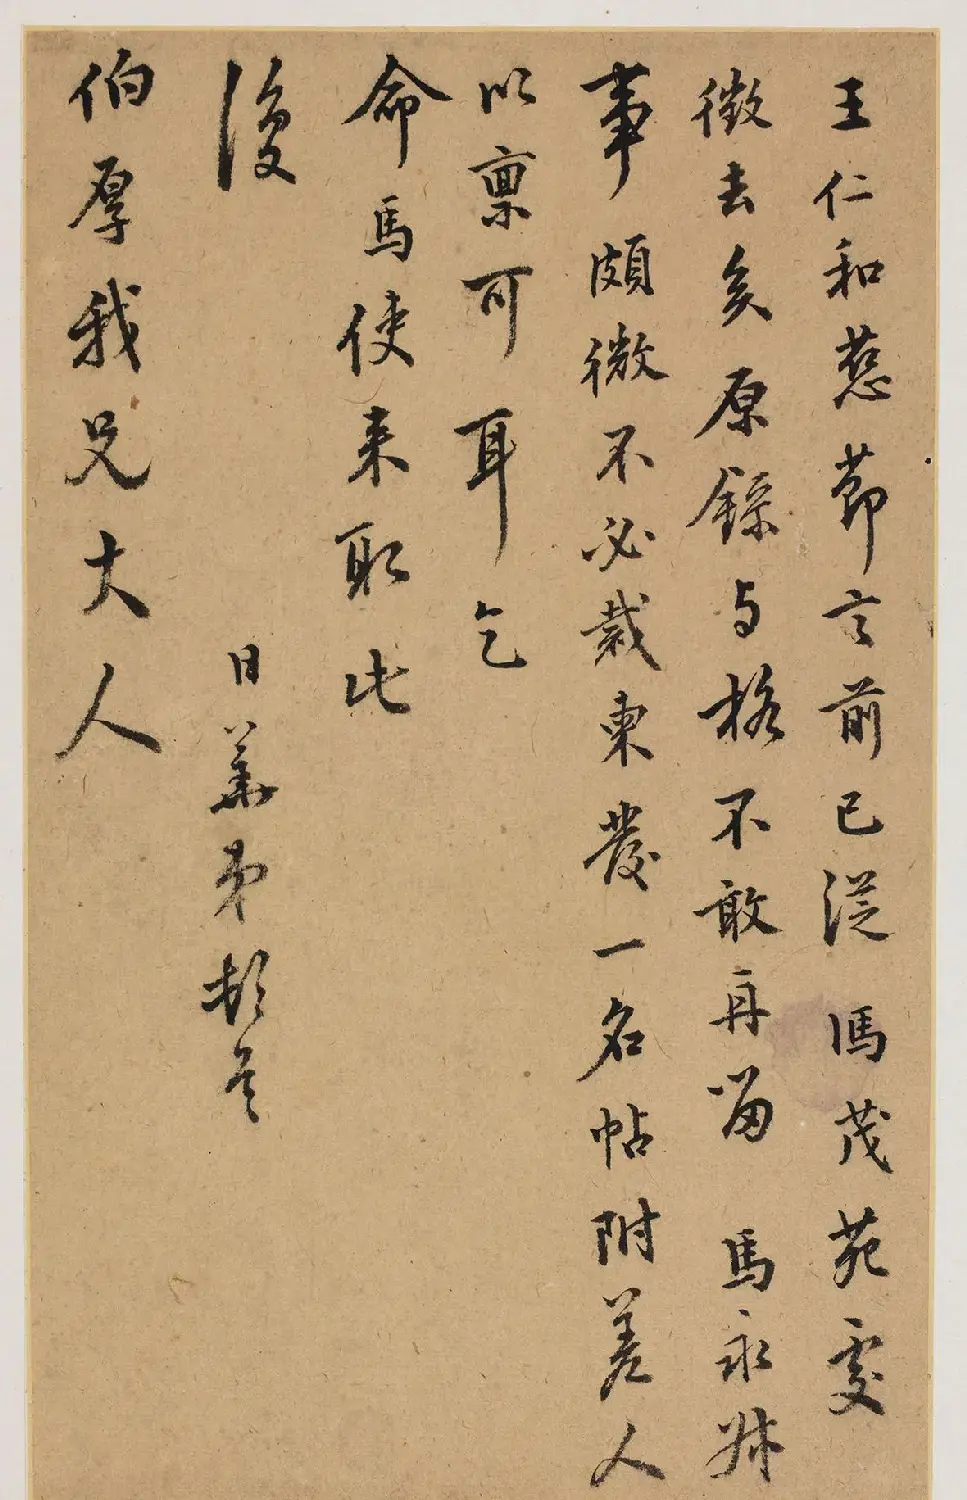 王仁和慈節之前已從馮茂苑處
徵去矣原錄与格不敢再留馬永
事頗微不必裁柬發一名帖附差人
以稟可耳乞
命馬使来取此
復
日華弟頓首
伯厚我兄大人